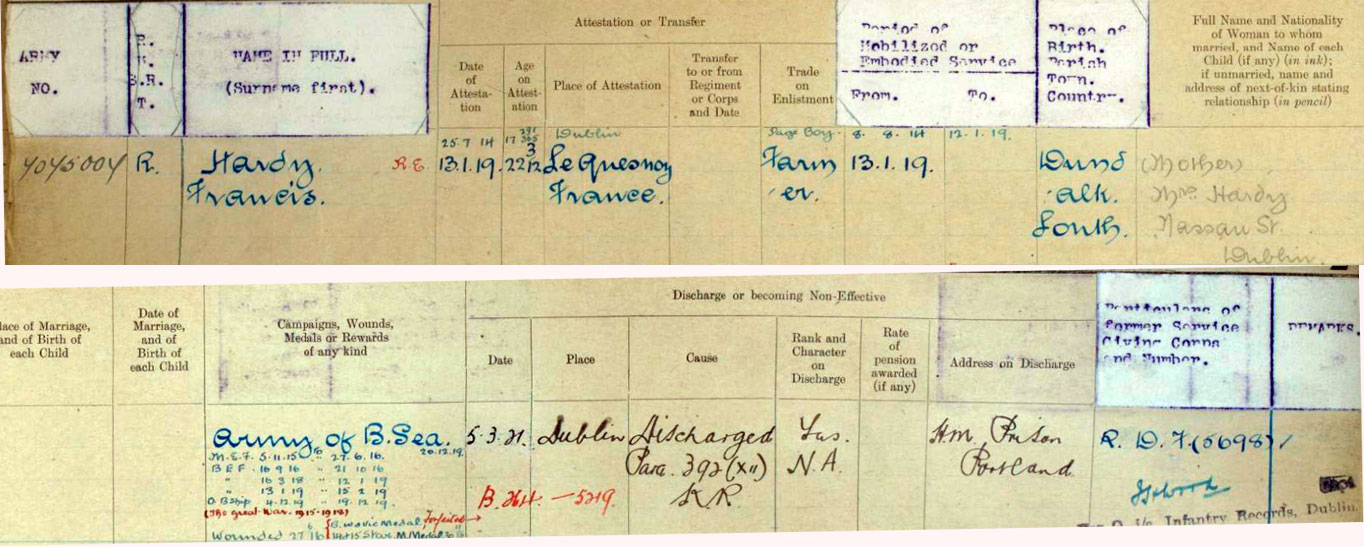 ARMY
NO.
R.
S.R.
T.
NAME IN FULL.
(Surname first).
Attestation or Transfer
Date
of
Attesta-
tion
Age
on
Attest-
ation
Place of Attestation
Transfer
to or from
Regiment
or Corps
and Date
Trade
on
Enlistment
Period of
Mobilized or
Embodied Service
From.
To.
Place of
Birth.
Parish
Town.
Country.
Full Name and Nationality
of Woman to whom
married, and Name of each
Child (if any) (in ink);
if unmarried, name and
address of next-of-kin stating
relationship (in pencil)
25 7 14
17 291/365
Dublin
Page Boy
8. 8. 14
12. 1. 19.
7045004
R.
Hardy.
Francis.
R.E.
13.1.19.
22 3/12
Le Quesnoy
France.
Farm
er.
13.1.19.
Dund
alk.
Louth.
(Mother)
Mrs Hardy
Nassau St.
Dublin.
lace of Marriage,
and of Birth of
each Child
Date of
Marriage,
and of
Birth of
each Child
Campaigns, Wounds,
Medals or Rewards
of any kind
Discharge or becoming Non-Effective
Date
Place
Cause
Rank and
Character
on
Discharge
Rate
of
pension
awarded
(if any)
Address on Discharge
Particulars of
former Service
Giving Corps
and Number.
REMARKS.
Army of B. Sea.
20.12.19.
M.E.F. 5.11.15 " 27.6.16.
B E F. 16 9 16 " 21 10 16
" 16 3 18 " 12 1 19
" 13 1 19 " 15 2 19
O. B Ship 4.12.19 " 19 12 19
(The great War. 1915-1918)
Wounded 27 16
B. War Vic Medal
Forfeited
1914 15 Star. M/Medal
5.3.21.
Dublin
Discharged
Para. 392 (XII)
K R
B. 264. — 5219.
Fus.
N.A.
HM Prison
Portland
R. D. F. (5698)
Infantry Records, Dublin.